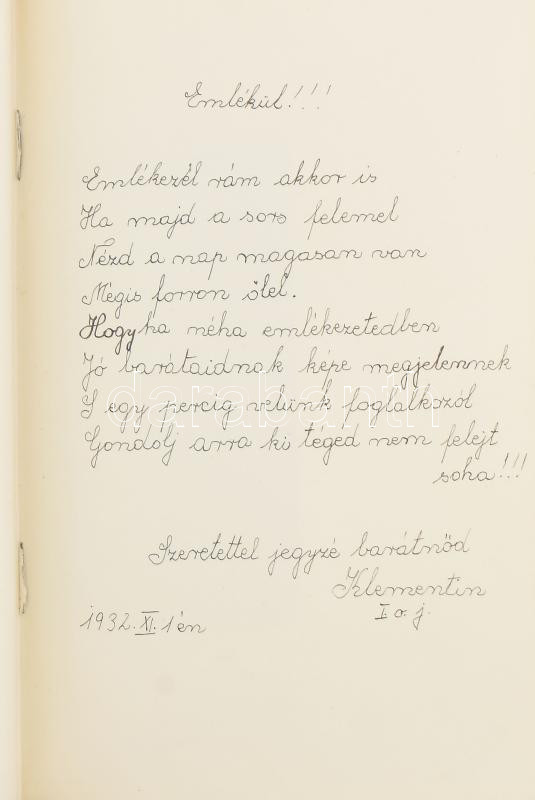 Emlékül!!!
Emlékezél rám akkor is
Ha majd a sors felemel
Nézd a nap magasan van
Mégis forron ölel.
Hogyha néha emlékezetedben
Jó barátaidnak képe megjelennek
S egy percig velünk foglalkozól
Gondólj arra ki téged nem felejt
soha!!!
Szeretettel jegyzé barátnőd
Klementin
I. o. j.
1932. XI. 1én
darabanth